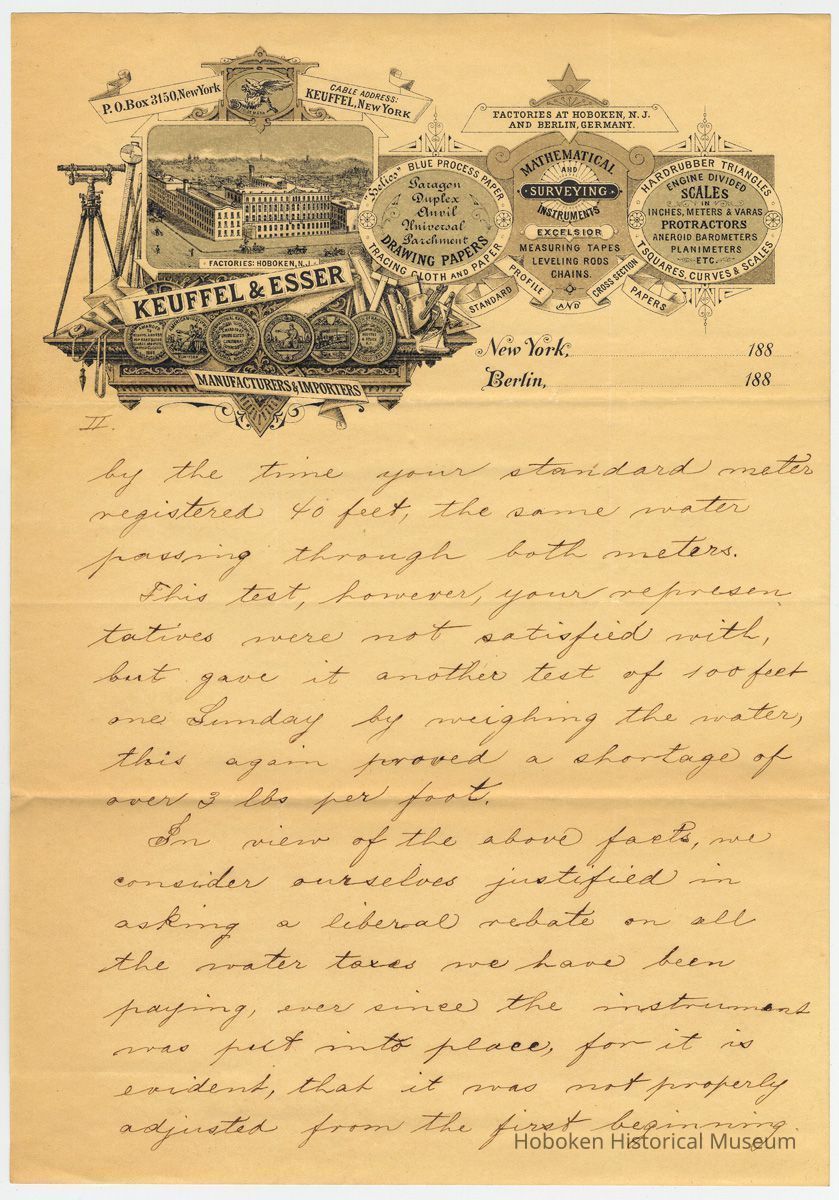 P.O.Box 3150,New York
CABLE ADDRESS:
KEUFFEL, NEW YORK
FACTORIES: HOBOKEN, N.J.
KEUFFEL & ESSER
MANUFACTURERS & IMPORTERS
"Helios" BLUE PROCESS PAPER
Paragon
Duplex
Anvil
Universal
Parchment
DRAWING PAPERS
TRACING CLOTH AND PAPER
FACTORIES AT HOBOKEN, N. J.
AND BERLIN, GERMANY.
MATHEMATICAL
AND
SURVEYING
INSTRUMENTS
EXCELSIOR
MEASURING TAPES
LEVELING RODS
CHAINS.
STANDARD PROFILE AND CROSS SECTION PAPERS
HARDRUBBER TRIANGLES
ENGINE DIVIDED
SCALES
IN
INCHES, METERS & VARAS
PROTRACTORS
ANEROID BAROMETERS
PLANIMETERS
ETC.
T SQUARES, CURVES & SCALES
New York, 188
Berlin, 188
II.
by the time your standard meter
registered 40 feet, the same water
passing through both meters.
This test, however, your represen
tatives were not satisfied with,
but gave it another test of 100 feet
one Sunday by weighing the water,
this again proved a shortage of
over 3 lbs per foot.
In view of the above facts, we
consider ourselves justified in
asking a liberal rebate on all
the water taxes we have been
paying, ever since the instrument
was put into place, for it is
evident, that it was not properly
adjusted from the first beginning.
Hoboken Historical Museum